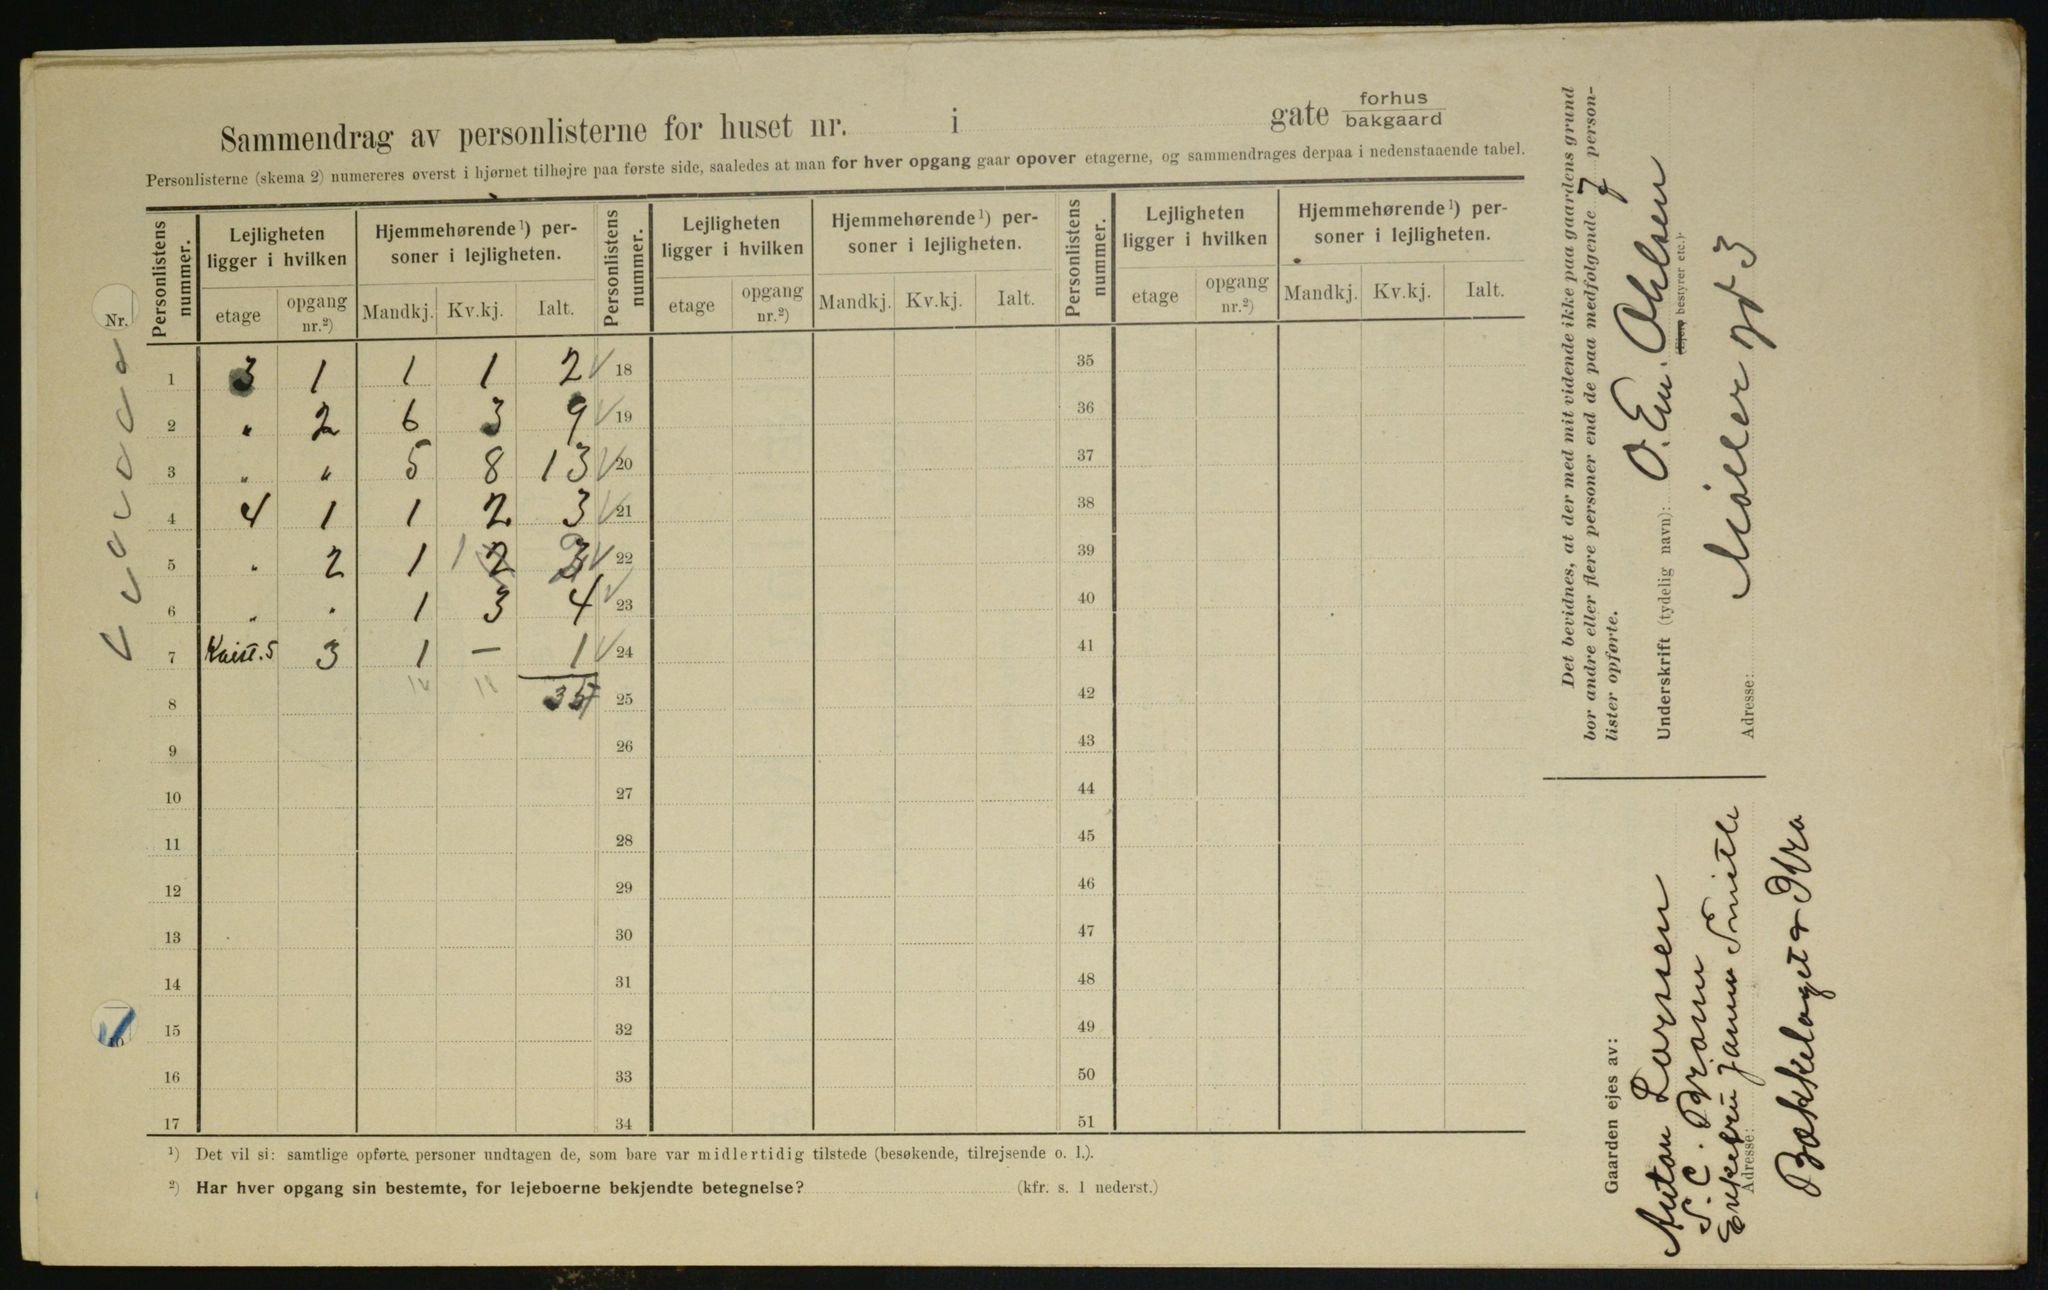 Sammendrag av personlisterne for huset nr. i gate forhus bakgaard
Personlisterne (skema 2) numereres øverst i hjørnet tilhøjre paa første side, saaledes at man for hver opgang gaar opover etagerne, og sammendrages derpaa i nedenstaaende tabel.
Nr.
Personlistens nummer. Lejligheten ligger i hvilken Hjemmehørende¹) personer i lejligheten. Personlistens nummer. Lejligheten ligger i hvilken Hjemmehørende¹) personer i lejligheten. Personlistens nummer. Lejligheten ligger i hvilken Hjemmehørende¹) personer i lejligheten.
etage opgang nr.²) Mandkj. Kv.kj. Ialt. etage opgang nr.²) Mandkj. Kv.kj. Ialt. etage opgang nr.²) Mandkj. Kv.kj. Ialt.
1 3 1 1 1 2 18 35
2 " 2 6 3 9 19 36
3 " " 5 8 13 20 37
4 4 1 1 2 3 21 38
5 " 2 1 1 2 22 39
6 " " 1 3 4 23 40
7 Kvist. 5 3 1 — 1 24 41
8 25 42
9 26 43
10 27 44
11 28 45
12 29 46
13 30 47
14 31 48
15 32 49
16 33 50
17 34 51
¹) Det vil si: samtlige opførte personer undtagen de, som bare var midlertidig tilstede (besøkende, tilrejsende o. l.).
²) Har hver opgang sin bestemte, for lejeboerne bekjendte betegnelse? (kfr. s. 1 nederst.)
Det bevidnes, at der med mit vidende ikke paa gaardens grund
bor andre eller flere personer end de paa medfølgende 7 person-
lister opførte.
Underskrift (tydelig navn): O. Em. Ohlsen
(Ejer, bestyrer etc.)
Adresse: Möllergt 3
Gaarden ejes av:
Anton Larsen
S. C. Brönn
Enkefru Janna Smith
Adresse:
Bækkelaget pr Kra